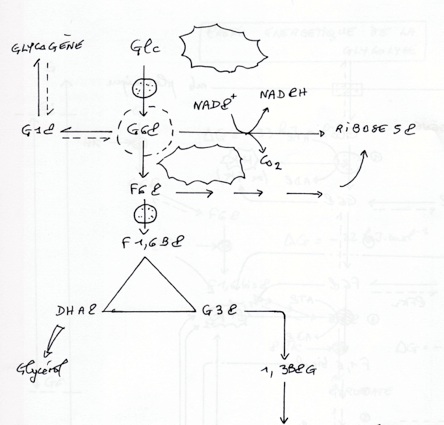 GLYCOGÈNE
Glc
NADP+
NADPH
G1P
G6P
RIBOSE 5P
CO2
F6P
F1,6BP
DHAP
G3P
Glycérol
1,3BPG